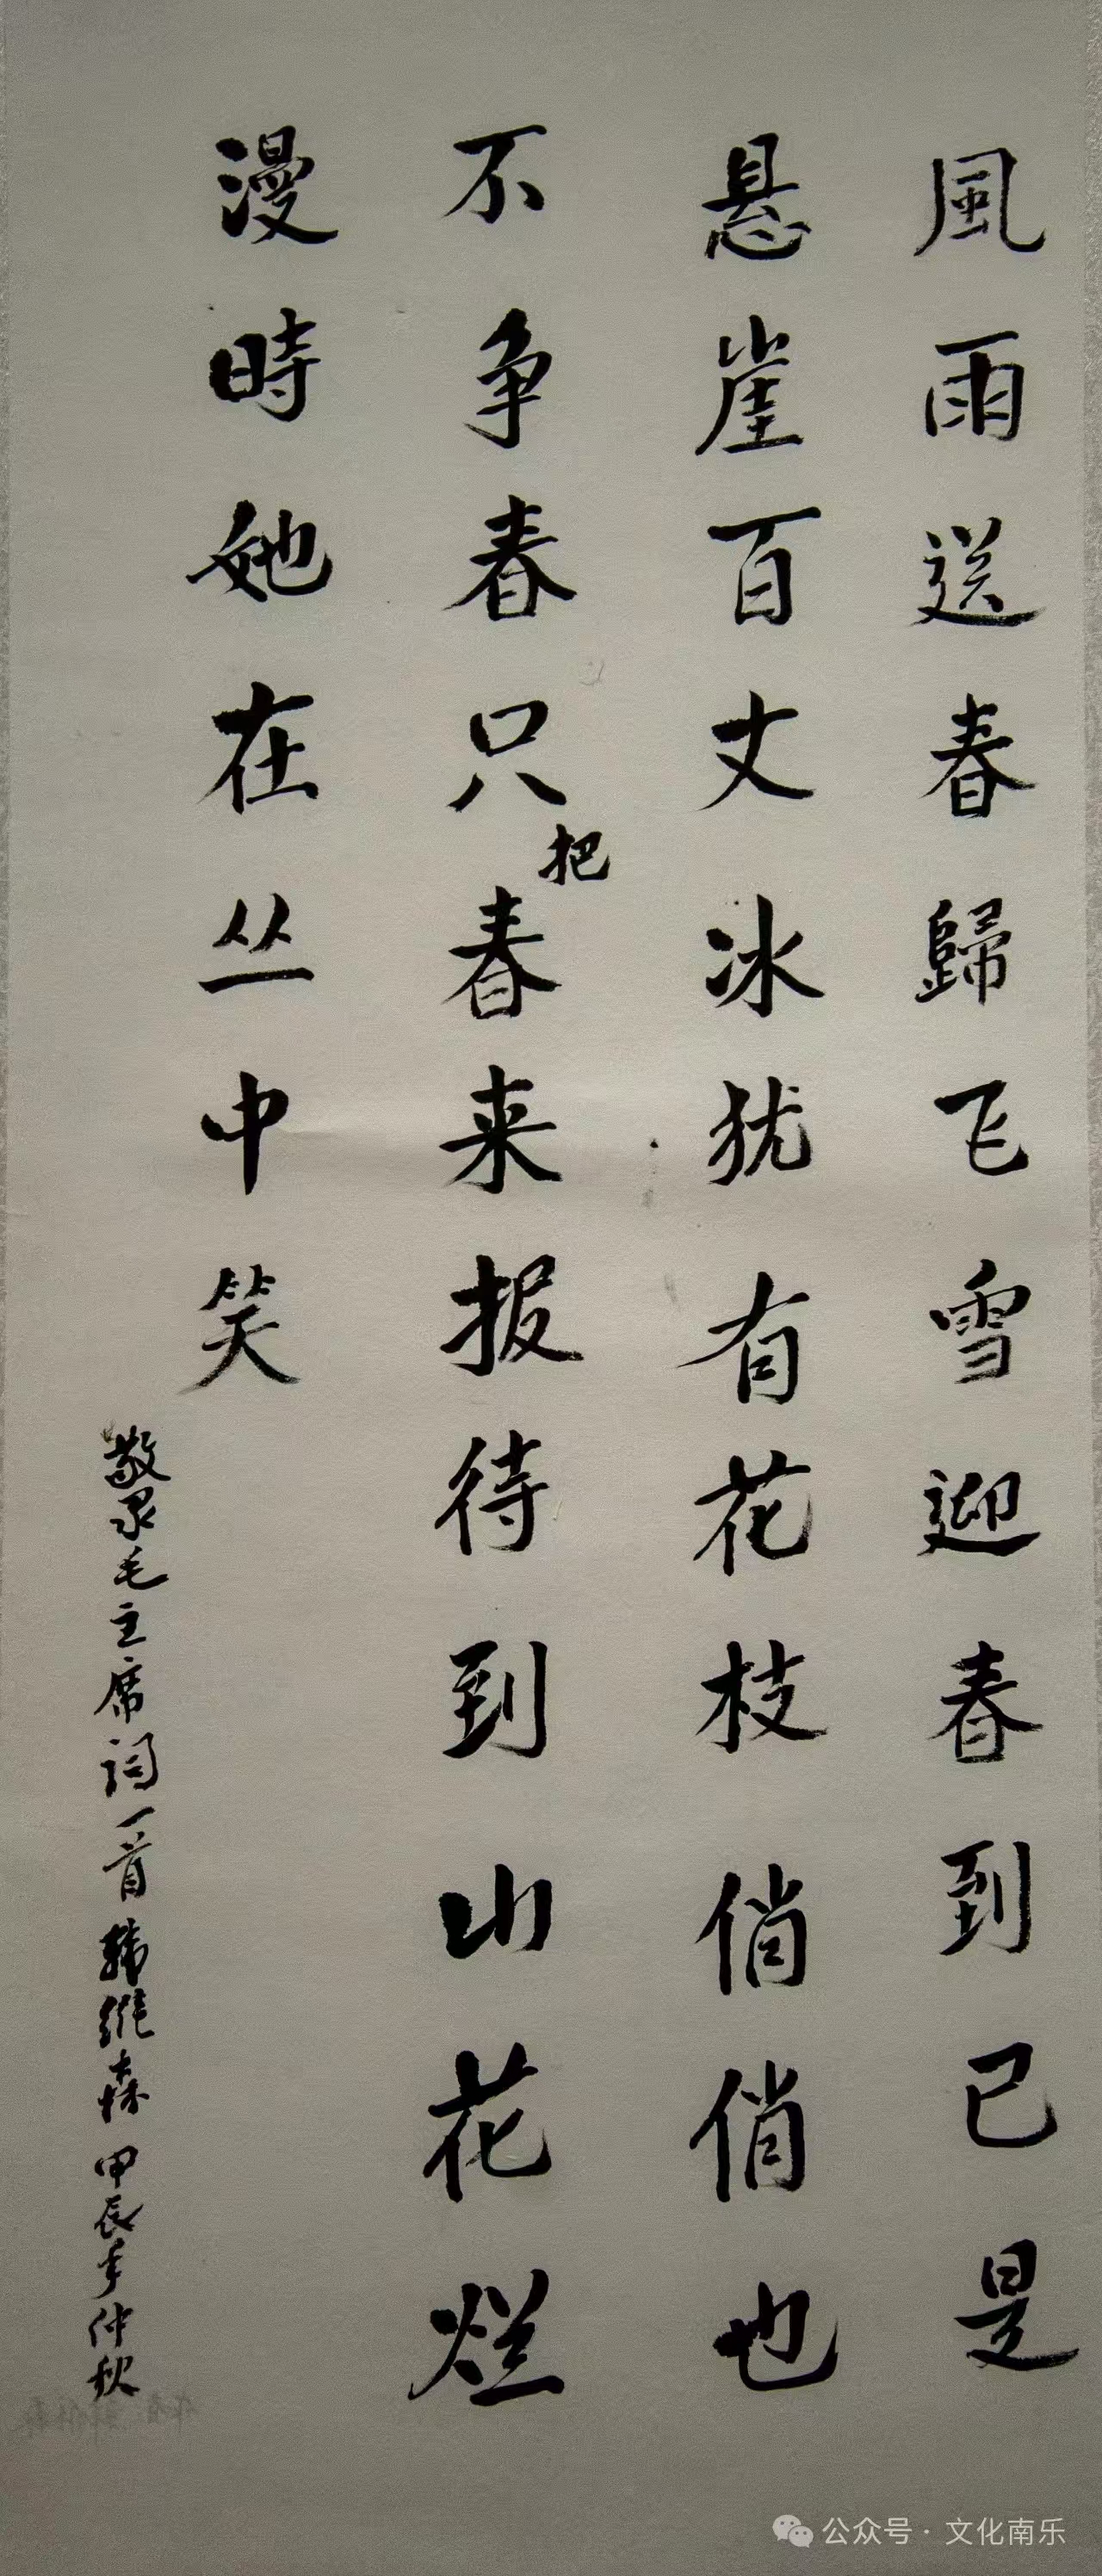 風雨送春歸飞雪迎春到已是
悬崖百丈冰犹有花枝俏俏也
不争春只把春来报待到山花烂
漫時她在丛中笑
敬录毛主席词一首 韩维森 甲辰年仲秋
公众号·文化南乐